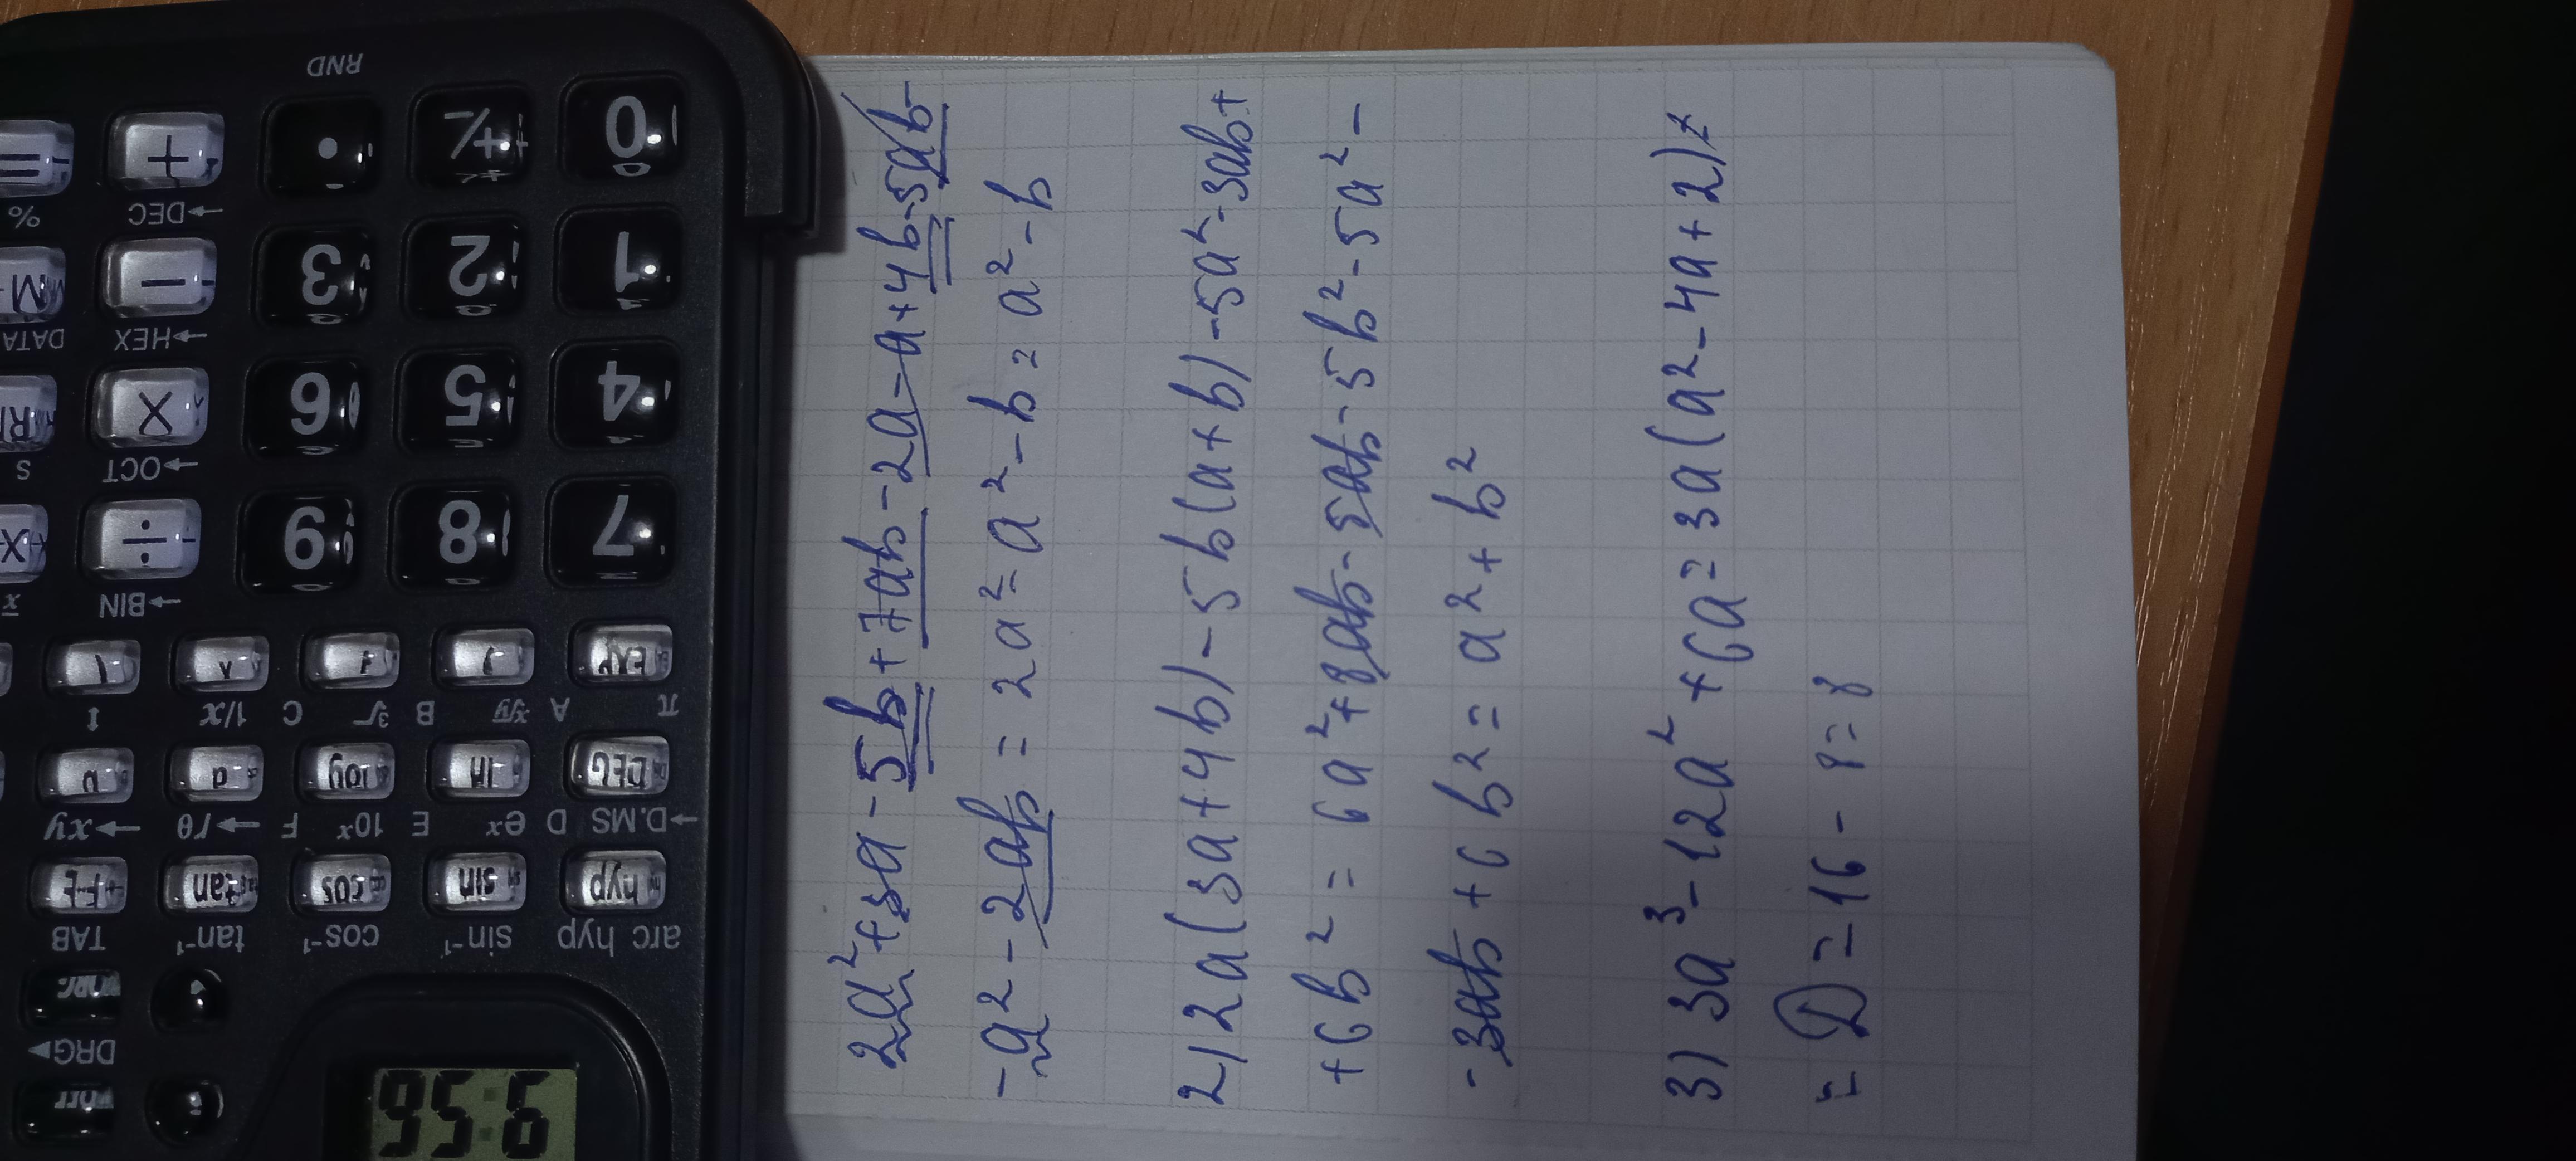 2a² + 3a - 5b + 7ab - 2a - a + 4b - 5ab -
- a² - 2ab = 2a² = a² - b = a² - b
2) 2a(3a + 4b) - 5b(a + b) - 5a² - 3ab +
+ 6b² = 6a² + 8ab - 5ab - 5b² - 5a² -
- 3ab + 6b² = a² + b²
3) 3a³ - 12a² + 6a = 3a(a² - 4a + 2) =
= D = 16 - 8 = 8
RND
0 +/- • + =
→DEC %
1 2 3 − M
→HEX DATA
4 5 6 × R
→OCT S
7 8 9 ÷ X
→BIN x̄
EXP
π A ˣ√y B ³√ C 1/x
DEG ln log a b
→D.MS D eˣ E 10ˣ F →rθ →xy
hyp sin cos tan F↔E
arc hyp sin⁻¹ cos⁻¹ tan⁻¹ TAB
DRG▶
9:56